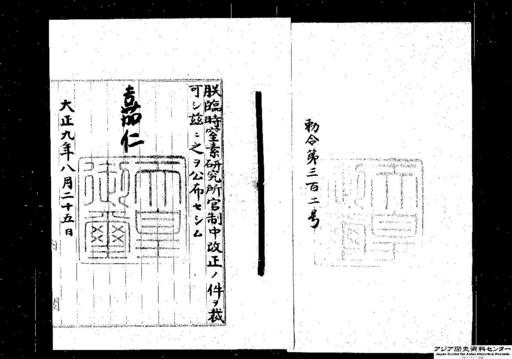 勅令第三百二号
朕臨時窒素研究所官制中改正ノ件ヲ裁
可シ茲ニ之ヲ公布セシム
嘉仁
大正九年八月二十五日
天皇
御璽
アジア歴史資料センター
Japan Center for Asian Historical Records